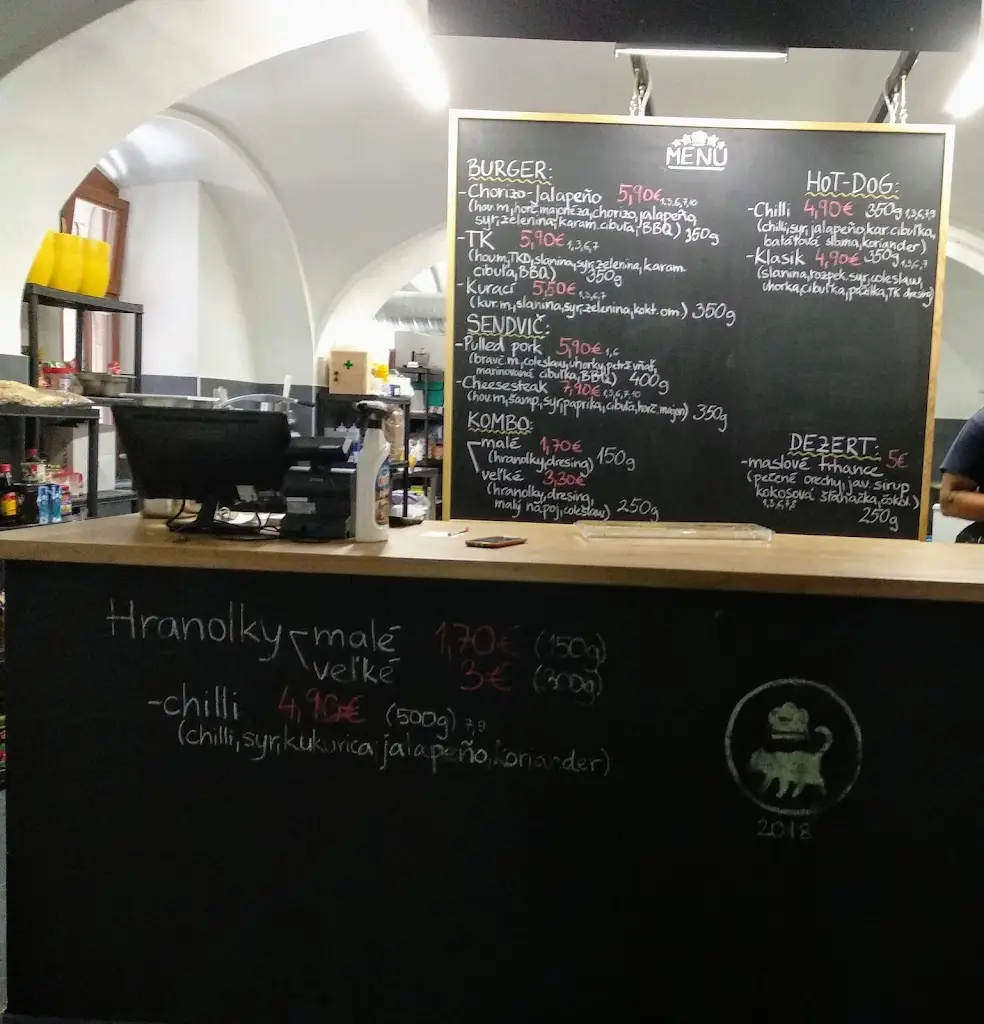 MENU
BURGER:
-Chorizo-Jalapeño 5,90€ 1,3,6,7,10
(hov.m, horč.majonéza, chorizo, jalapeňo,
syr, zelenina, karam.cibuľa, BBQ) 350g
-TK 5,90€ 1,3,6,7
(hov.m, TKD, slanina, syr, zelenina, karam.
cibuľa, BBQ) 350g
-Kurací 5,50€ 1,3,6,7
(kur.m, slanina, syr, zelenina, kokt.om) 350g
SENDVIČ:
-Pulled pork 5,90€ 1,6
(bravč.m, coleslaw, uhorky, petržl.vňať,
marinovaná cibuľka, BBQ) 400g
-Cheesesteak 7,90€ 1,3,6,7,10
(hov.m, šamp, syr, paprika, cibuľa, horč.majon) 350g
KOMBO:
malé 1,70€
(hranolky, dresing) 150g
veľké 3,30€
(hranolky, dresing,
malý nápoj, coleslaw) 250g
HOT-DOG:
-Chilli 4,90€ 350g 1,3,6,7,9
(chilli, syr, jalapeňo, kar.cibuľka,
batátová slama, koriander)
-Klasik 4,90€ 350g 1,3,6,7
(slanina, rozpek.syr, coleslaw,
uhorka, cibuľka, pažítka, TK dresing)
DEZERT:
-maslové trhance 5€
(pečené orechy, jav.sirup
kokosová šľahačka, čokol.)
250g
Hranolky malé 1,70€ (150g)
veľké 3€ (300g)
-chilli 4,90€ (500g) 7,9
(chilli, syr, kukurica, jalapeño, koriander)
2018